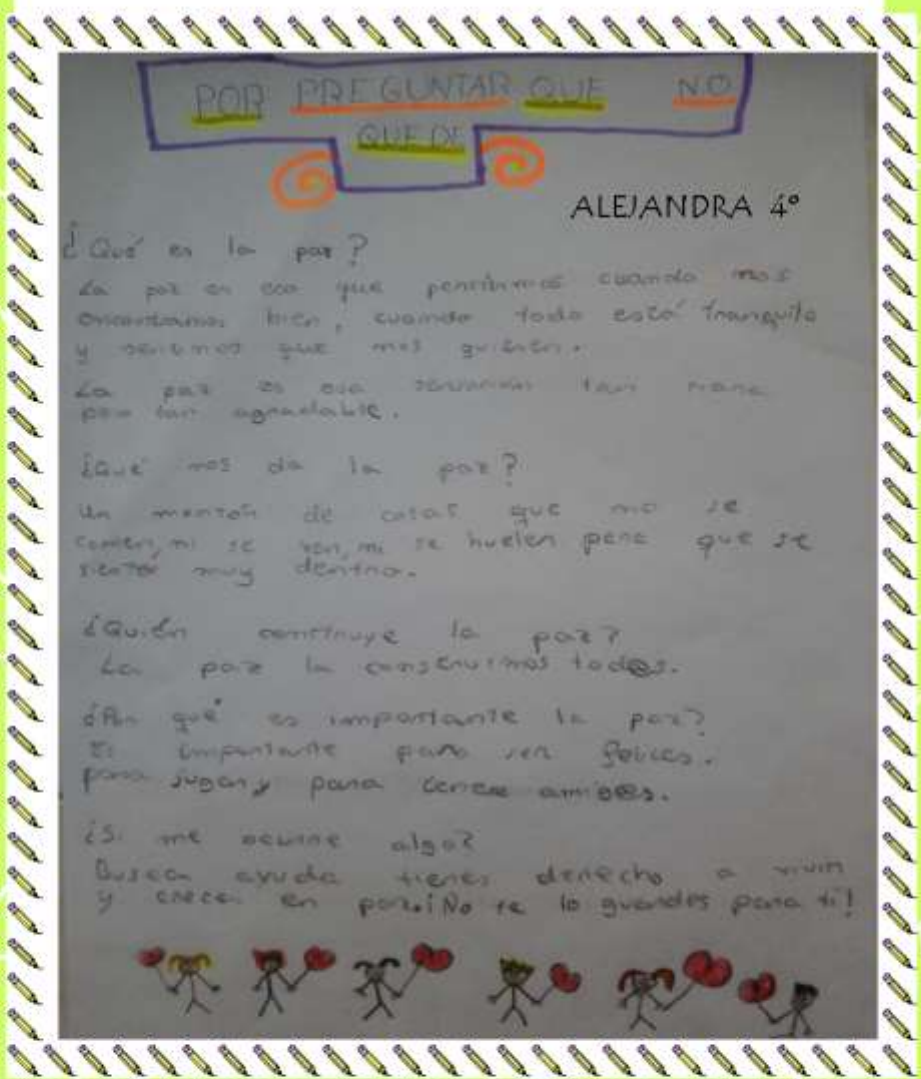 POR PREGUNTAR QUE NO
QUEDE
ALEJANDRA 4º
¿Qué es la paz?
La paz es eso que percibimos cuando nos
encontramos bien, cuando todo está tranquilo
y sentimos que nos quieren.
La paz es esa sensación tan rara
pero tan agradable.
¿Qué nos da la paz?
Un montón de cosas que no se
comen, ni se ven, ni se huelen pero que se
sienten muy dentro.
¿Quién construye la paz?
La paz la construimos tod@s.
¿Por qué es importante la paz?
Es importante para ser felices.
para jugar y para tener amig@s.
¿Si me ocurre algo?
Busca ayuda tienes derecho a vivir
y crecer en paz. ¡No te lo guardes para ti!